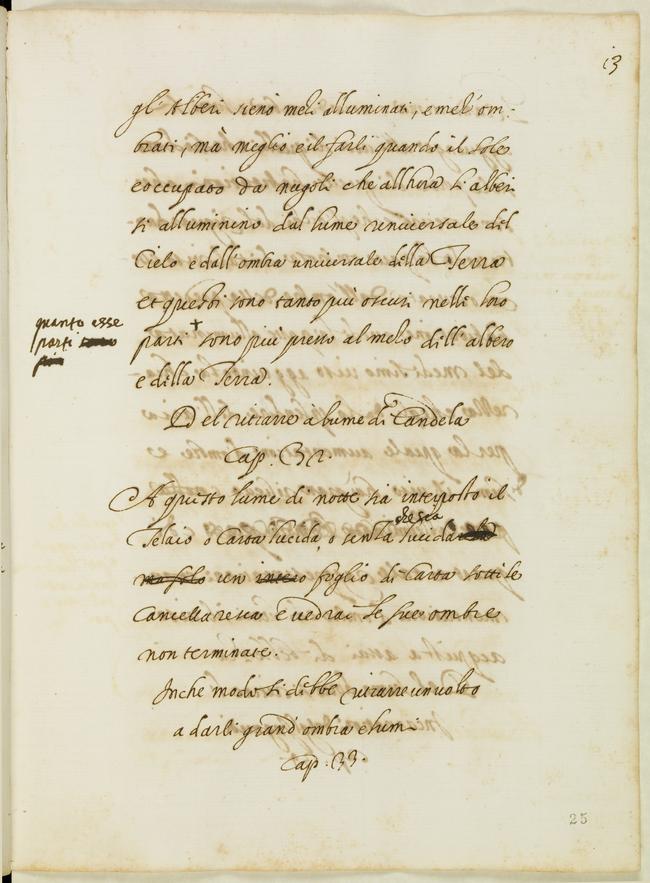 13
gl'Alberi sieno mezi alluminati, e mezi om-
brati, mà meglio è il farli quando il sole
e occupato da nugoli che all hora li alberi
si alluminino dal lume universale del
Cielo e dall'ombra universale della Terra
et questi sono tanto più oscuri nelle loro
quanto esse
parti
parti + sono più presso al mezo dell'albero
e della Terra.
Del ritrarre a lume di Candela
Cap. 32
A questo lume di notte sia interposto il
Telaio o Carta lucida, o senza lucida
un foglio di Carta sottile
Cancellaresca e vedrai le sue ombre
non terminate.
In che modo si debbe ritrarre un volto
a darli grand'ombra e lumi
Cap: 33.
25